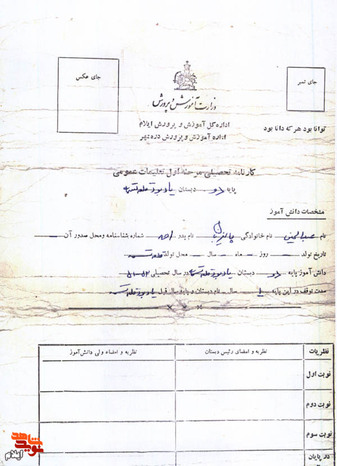 جای عکس
جای تمبر
وزارت آموزش و پرورش
اداره کل آموزش و پرورش ایلام
اداره آموزش و پرورش دره شهر
توانا بود هر که دانا بود
کارنامه تحصیلی مرحله اول تعلیمات عمومی
پایه دو دبستان یادبود
مشخصات دانش آموز
نام عبدالحسین نام خانوادگی نام پدر شماره شناسنامه و محل صدور آن
تاریخ تولد - روز - ماه - سال - محل تولد
دانش آموز پایه دو دبستان یادبود در سال تحصیلی ۵۲-۵۱
مدت توقف در این پایه سال نام دبستان در پایه سال قبل یادبود
نظریات
نظریه و امضاء رئیس دبستان
نظریه و امضاء ولی دانش‌آموز
نوبت اول
نوبت دوم
نوبت سوم
در پایان
نوید شاهد
ایلام